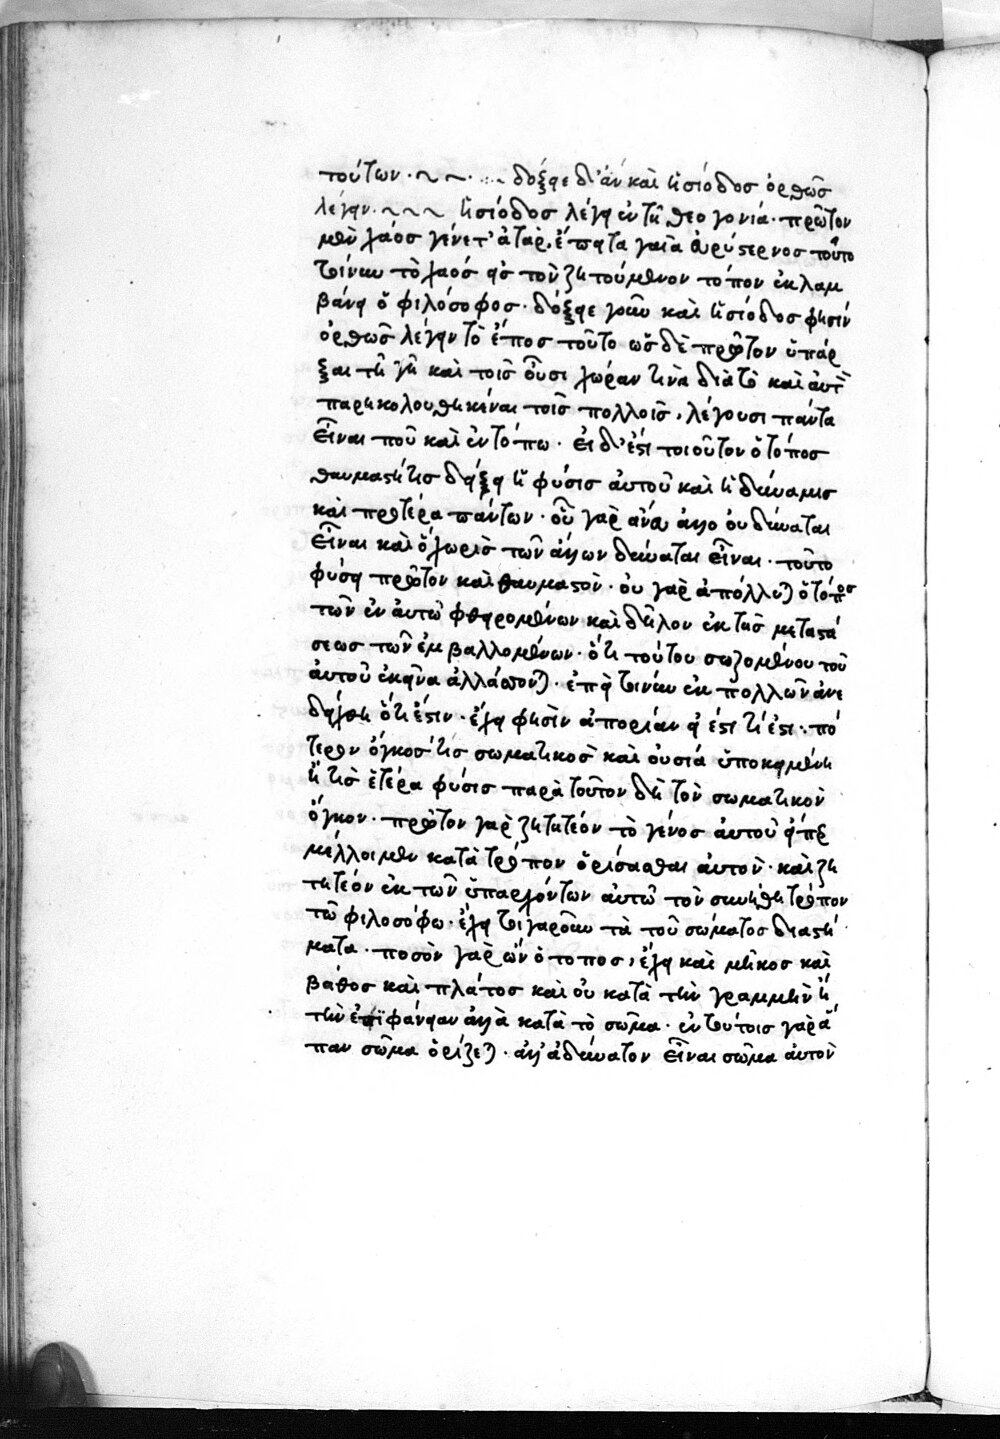 τούτων · δόξειε δ' ἂν καὶ ἡσίοδος ὀρθῶς
λέγειν · ἡσίοδος λέγει ἐν τῆ θεογονία · πρῶτον
μὲν χάος γένετ' ἀτὰρ ἔπειτα γαῖα εὐρύστερνος τοῦτο
τοίνυν τὸ χαός εἰς τὸν ζητούμενον τόπον ἐκλαμ
βάνει ὁ φιλόσοφος · δόξειε γοῦν καὶ ἡσίοδος φησὶν
ὀρθῶς λέγειν τὸ ἔπος τοῦτο ὡς δὲ πρῶτον ὑπάρ
ξαι τῆ γῆ καὶ τοῖς οὖσι χώραν τινὰ διὰ τὸ καὶ αὐτῶ
παρηκολουθηκέναι τοῖς πολλοῖς, λέγουσι πάντα
εἶναι ποῦ καὶ ἐν τόπω · εἰ δ' ἔστι τοιοῦτον ὁ τόπος
θαυμαστή τις δείξει ἡ φύσις αὐτοῦ καὶ ἡ δύναμις
καὶ προτέρα πάντων · οὗ γὰρ ἄνευ ἄλλο οὐ δύναται
εἶναι καὶ ὃ χωρὶς τῶν ἄλλων δύναται εἶναι · τοῦτο
φύσει πρῶτον καὶ θαυμαστὸν · οὐ γὰρ ἀπόλλυται ὁ τόπος
τῶν ἐν αὐτῶ φθειρομένων καὶ δῆλον ἐκ τῆς μεταστά
σεως τῶν ἐμβαλλομένων · ὅτι τούτου σωζομένου τοῦ
αὐτοῦ ἐκεῖνα ἀλλάττονται · ἐπεὶ τοίνυν ἐκ πολλῶν ἀνε
δείχθη ὅτι ἔστιν · ἔχει φησὶν ἀπορίαν εἰ ἔστι τί ἐστι · πό
τερον ὄγκος τις σωματικὸς καὶ οὐσία ὑποκειμένη
ἤ τις ἑτέρα φύσις παρὰ τοῦτον δὴ τὸν σωματικὸν
ὄγκον · πρῶτον γὰρ ζητητέον τὸ γένος αὐτοῦ εἴπερ
μέλλοιμεν κατὰ τρόπον ὁρίσασθαι αὐτὸν · καὶ ζη
τητέον ἐκ τῶν ὑπαρχόντων αὐτῶ τὸν συνήθη τρόπον
τῶ φιλοσόφω · ἔχει τοιγαροῦν τὰ τοῦ σώματος διαστή
ματα · ποσὸν γὰρ ὢν ὁ τόπος, ἔχει καὶ μῆκος καὶ
βάθος καὶ πλάτος καὶ οὐ κατὰ τὴν γραμμὴν ἢ
τὴν ἐπιφάνειαν ἀλλὰ κατὰ τὸ σῶμα · ἐν τούτοις γὰρ ἅ
παν σῶμα ὁρίζεται · ἀλλ' ἀδύνατον εἶναι σῶμα αὐτὸν